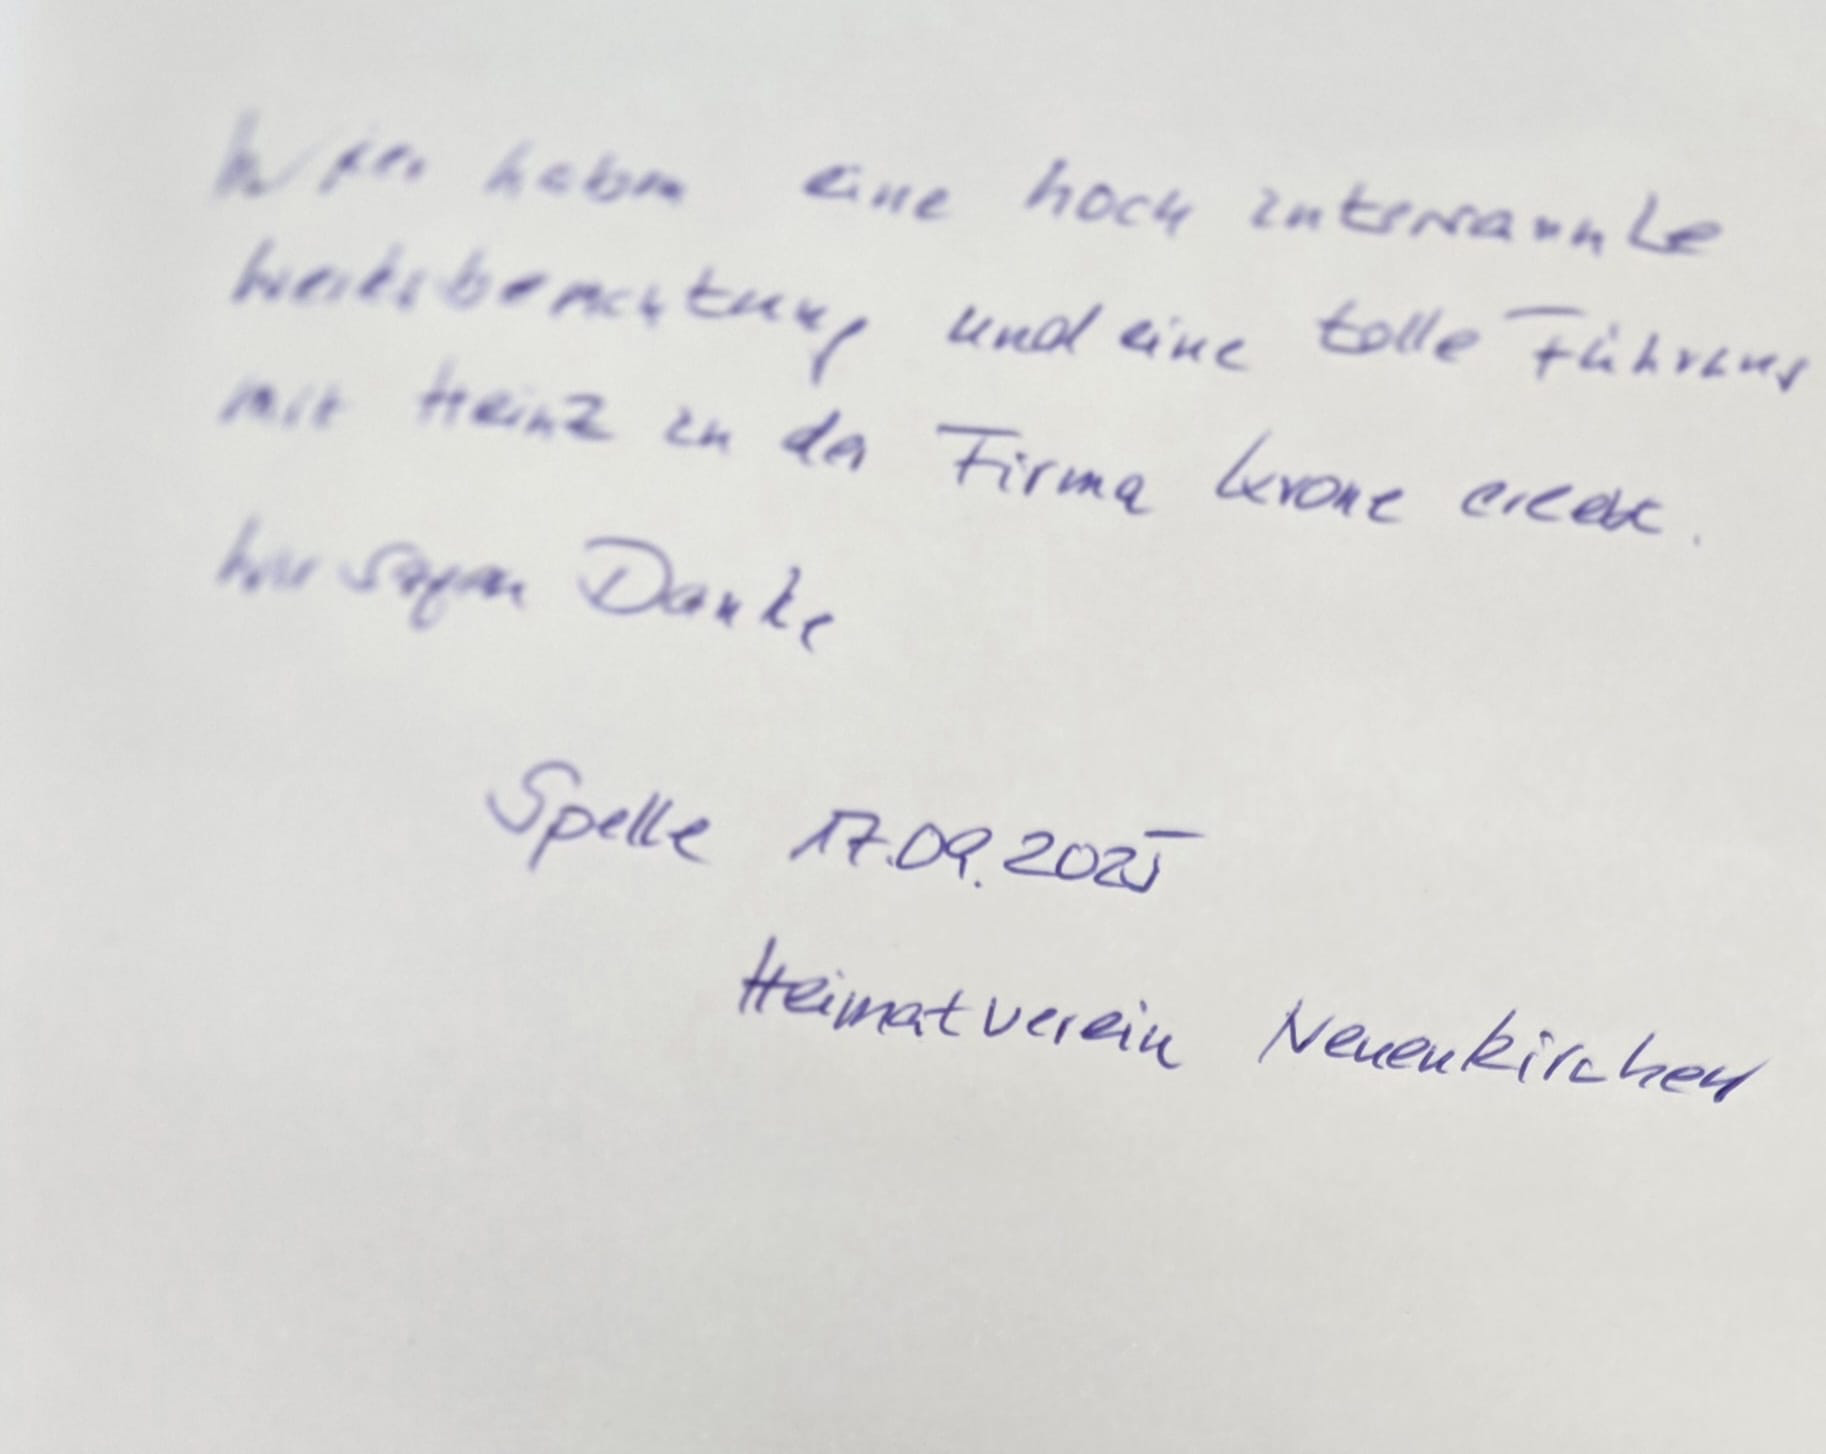 Wir haben eine hoch interessante
Werksbesichtung und eine tolle Führung
mit Heinz in der Firma Krone erlebt.
Wir sagen Danke
Spelle 17.09.2025
Heimatverein Neuenkirchen